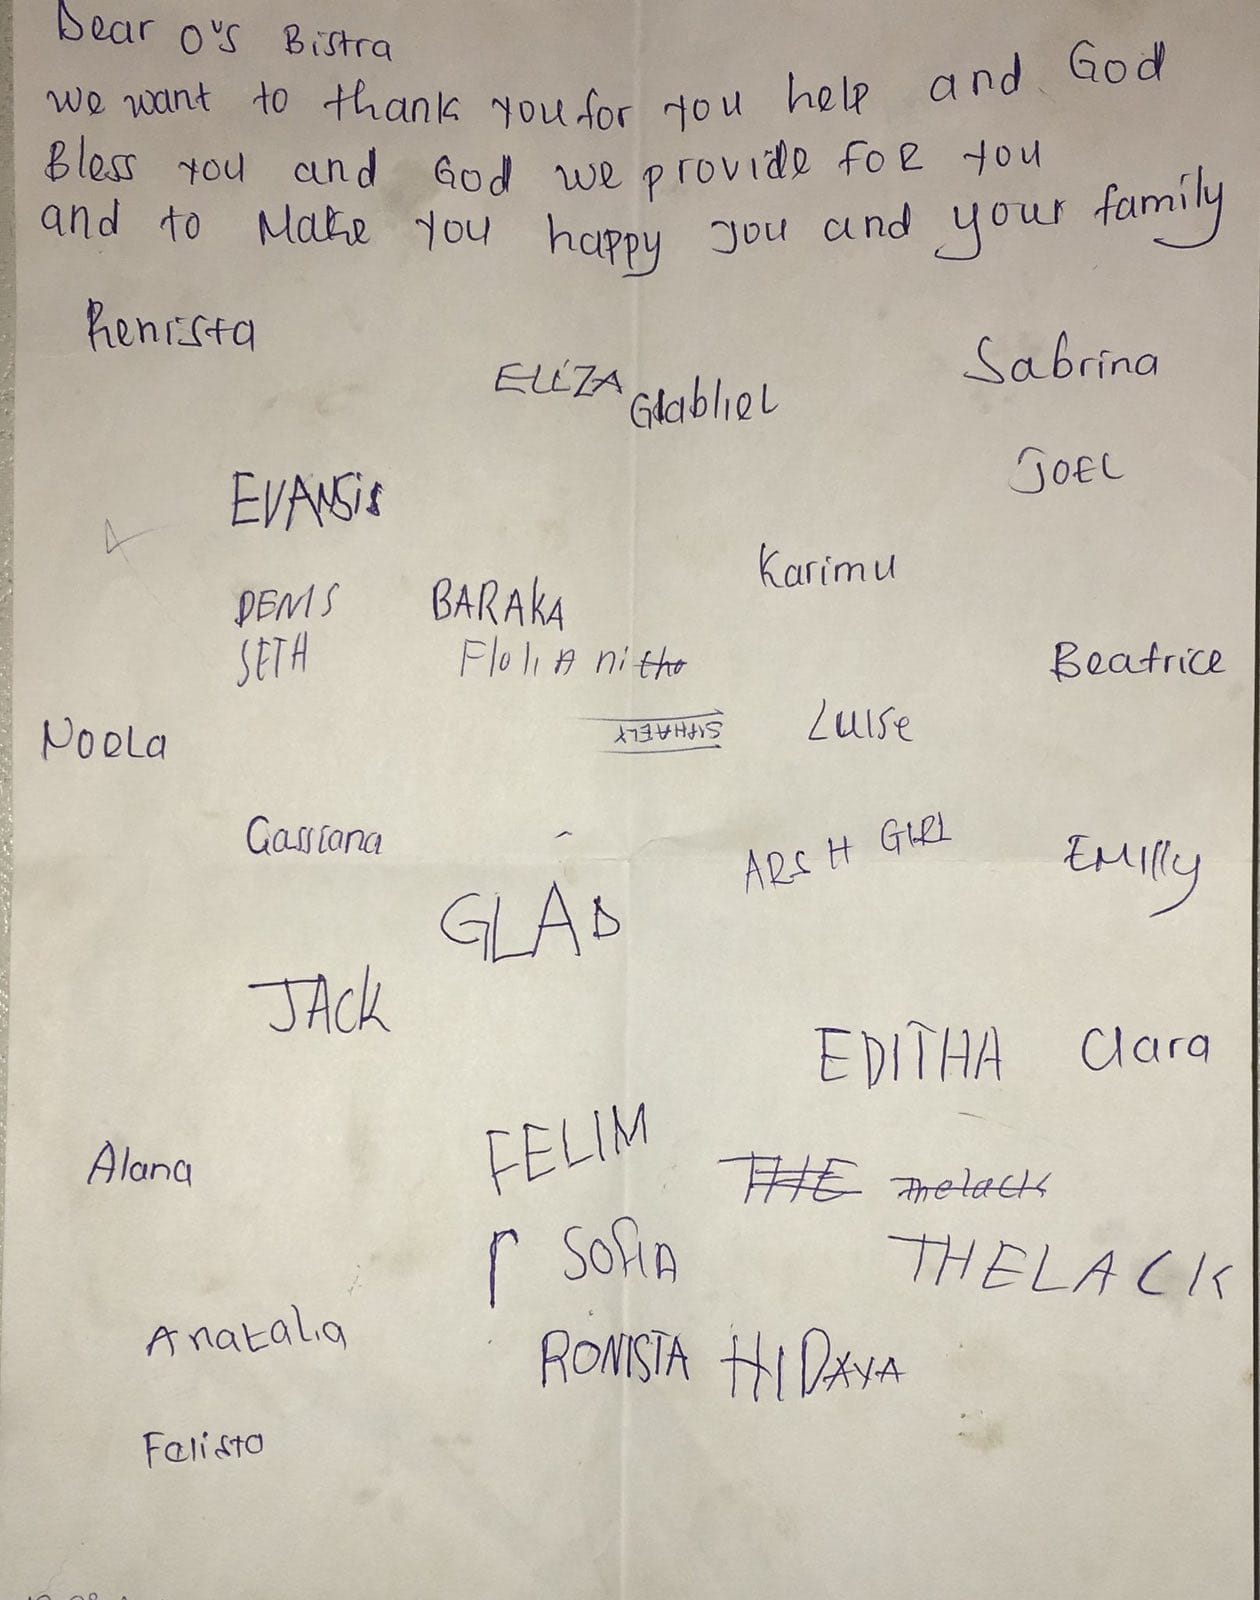 Dear O's Bistra
we want to thank you for you help and God
Bless you and God we provide FOR you
and to Make you happy you and your family
Renista
ELIZA Gabliel Sabrina
JOEL
EVANSis
Karimu
DENIS BARAKA
SETH Floli A ni tho
Beatrice
Noela SIPHAELY Luise
Gassiana ARSH GIRL EMIlly
GLAD
JACK
EDITHA Clara
FELIM
Alana THE Thelack
SOfiA THELACK
Anatalia RONISTA HIDAYA
Falisto